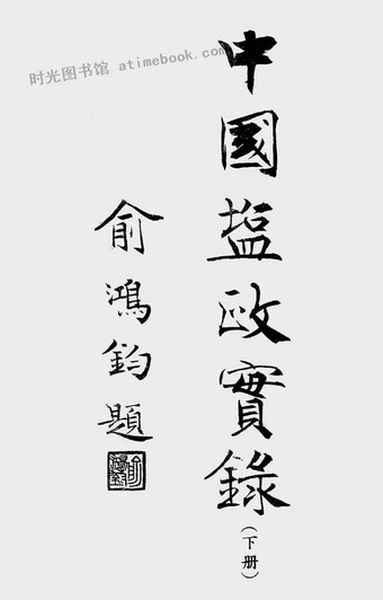 时光图书馆 atimebook.com
中國塩政實錄(下册)
俞鴻鈞題